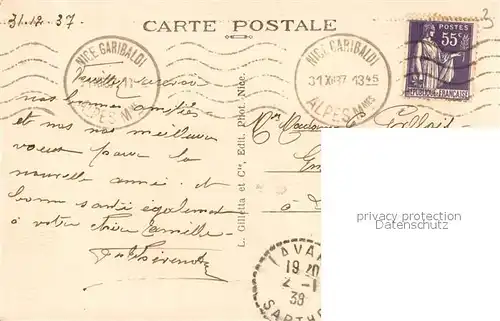 31.12.37.
CARTE POSTALE
NICE GARIBALDI
ALPES Mmes
NICE GARIBALDI
31 XII 37 1345
ALPES Mmes
POSTES
55c
RÉPUBLIQUE FRANÇAISE
3
Veuillez recevoir
nos bonnes amitiés
et nos meilleurs
voeux pour la
nouvelle année. et
bonne santé également
à votre chère famille
L. Gilletta et Cie, Edit. Phot. Nice
privacy protection
Datenschutz
19 20
2 -1
38
SARTHE